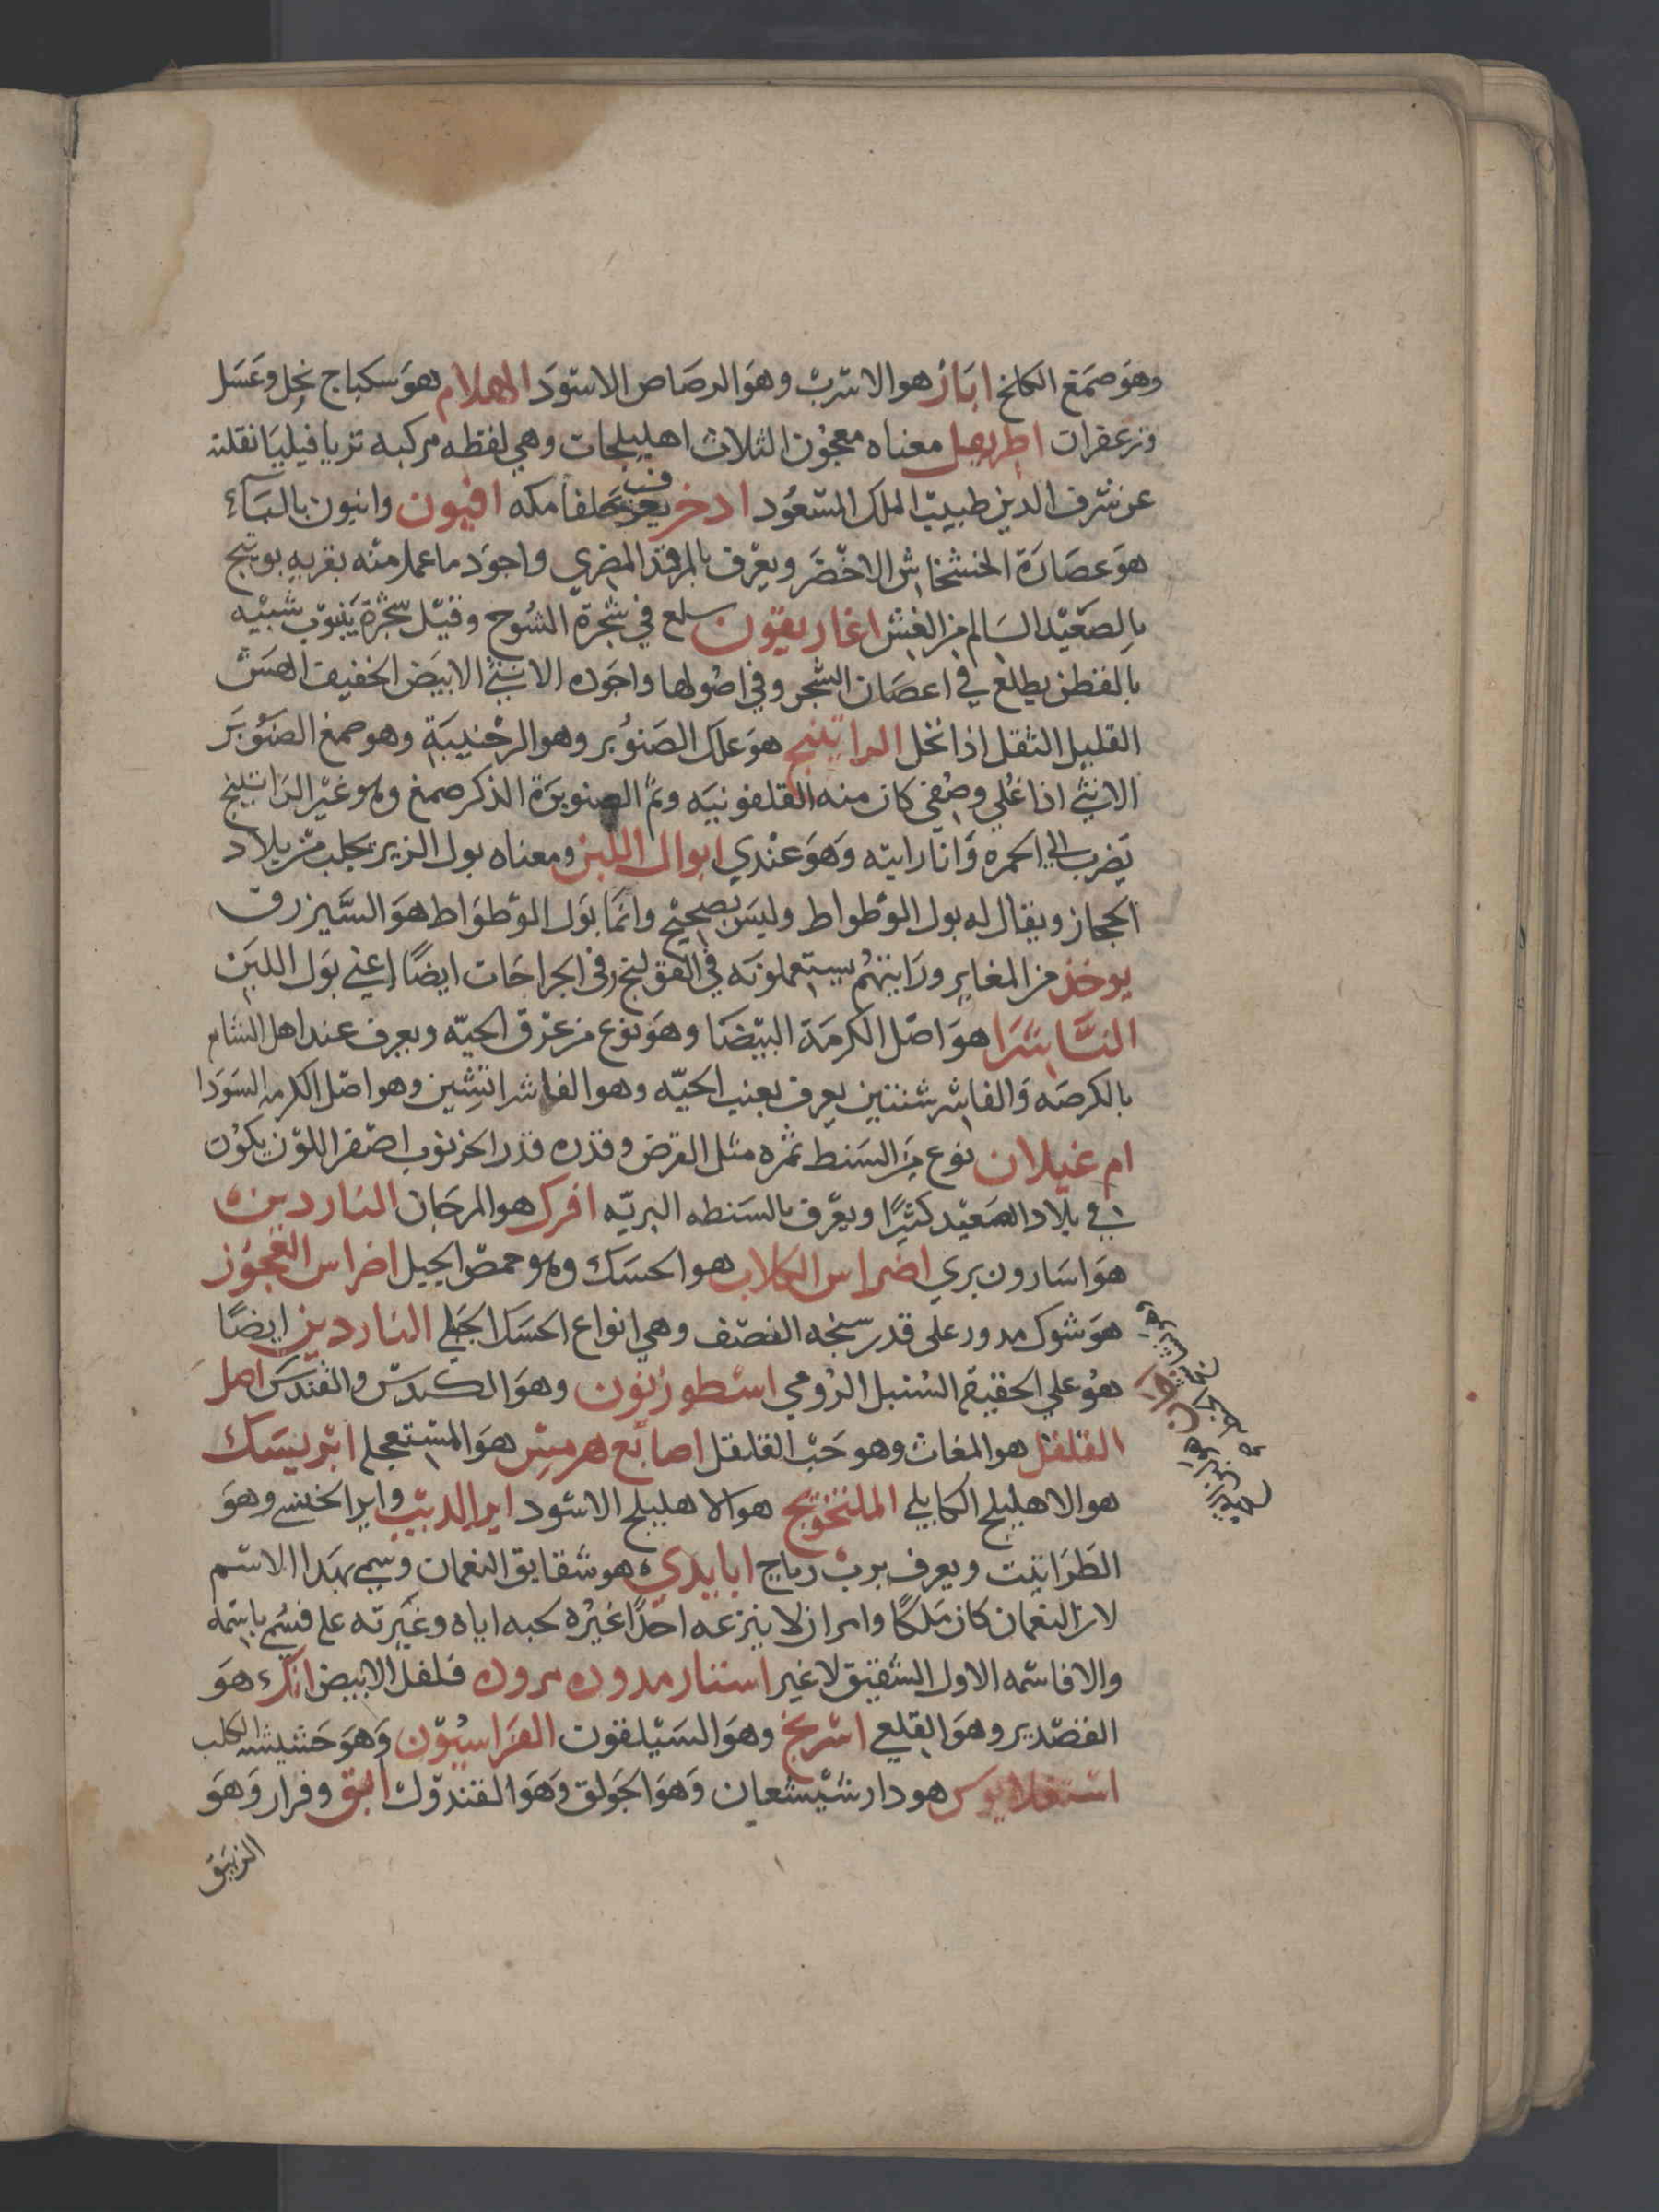 وهو صمغ الكلخ ابار هو الاسرب وهو الرصاص الاسود الهلام هو سكباج بخل وعسل
وزعفران اطريفل معناه معجون الثلاث اهليلجات وهي لفظه مركبه ترياقيليا نقلته
عن شرف الدين طبيب الملك المسعود ادخر يعرف بحلفا مكه افيون وابيون بالباء
هو عصارة الخشخاش الاخضر ويعرف بالمرقد المصري واجود ما عمل منه بقريه بوتيج
بالصعيد السالم من الغش اغاريقون سلع في شجرة الشوح وقيل شجرة ينبوت شبيه
بالقطن يطلع في اعصان الشجر وفي اصولها واجوده الانثي الابيض الخفيف الهش
القليل الثقل اذا نخل الراتينج هو علك الصنوبر وهو الرجينيه وهو صمغ الصنوبر
الانثي اذا غلي وصفي كان منه القلفونيه وثم الصنوبرة الذكر صمغ وهو غير الراتينج
يضرب الي الحمره وانا رايته وهو عندي ابوال اللبن ومعناه بول الزير يجلب من بلاد
الحجاز ويقال له بول الوطواط وليس بصحيح وانما بول الوطواط هو السيزرق
يوخذ من المغاير ورايتهم يستعملونه في القولنج وفي الجراحات ايضا اعني بول اللبن
الفاشرا هو اصل الكرمة البيضا وهو نوع من عرق الحيه ويعرف عند اهل الشام
بالكرمه والفاشرشنتين يعرف بعنب الحيه وهو الفاشراتشين وهو اصل الكرمه السودا
ام غيلان نوع من السنط ثمره مثل القرض وقدره قدر الخرنوب اصفر اللون يكون
في بلاد الصعيد كثيرا ويعرف بالسنطه البريه افرك هو المرجان الناردين
هو اسارون بري اضراس الكلاب هو الحسك وهو حمص الجبل اضراس العجوز
هو شوك مدور على قدر سنجه النصف وهي انواع الحسك الجبلي الناردين ايضا
هو علي الحقيقه السنبل الرومي اسطوزنون وهو الكندس والقندس اصل
القلقل هو المغاث وهو حب القلقل اصابع هرمس هو المستعجل ابريسك
هو الاهليلج الكابيلي هو الاهليلج الاسود اير الديب واير الخنسي وهو
الطراثيث ويعرف برب رباح هو شقايق النعمان وسمي بهدا الاسم
لان النعمان كان ملكا وامر ان لا ينزعه احدا غيره لحبه اياه وغيرته على فسمي باسمه
والا فاسمه الاول الشقيق لا غير فلفل الابيض انك هو
القصدير وهو القلعي اسرنج وهو السيلقون الفراسيون وهو حشيشة الكلب
هو دار شيشعان وهو الجولق وهو القندول ابق وفرار وهو
الزيبق